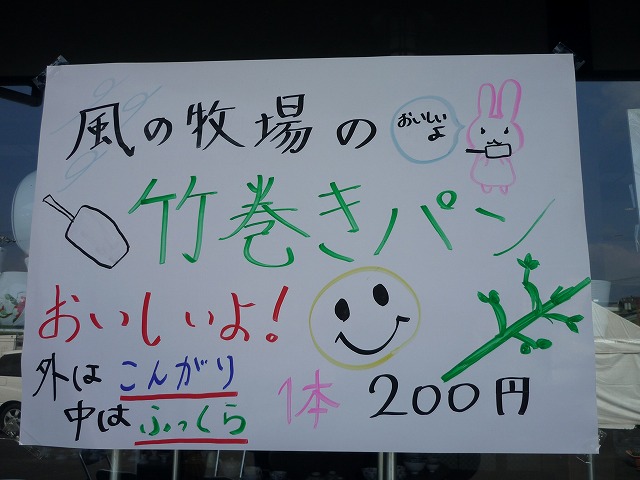 風の牧場の
おいしい
よ
竹巻きパン
おいしいよ！
外はこんがり
中はふっくら
1本 200円